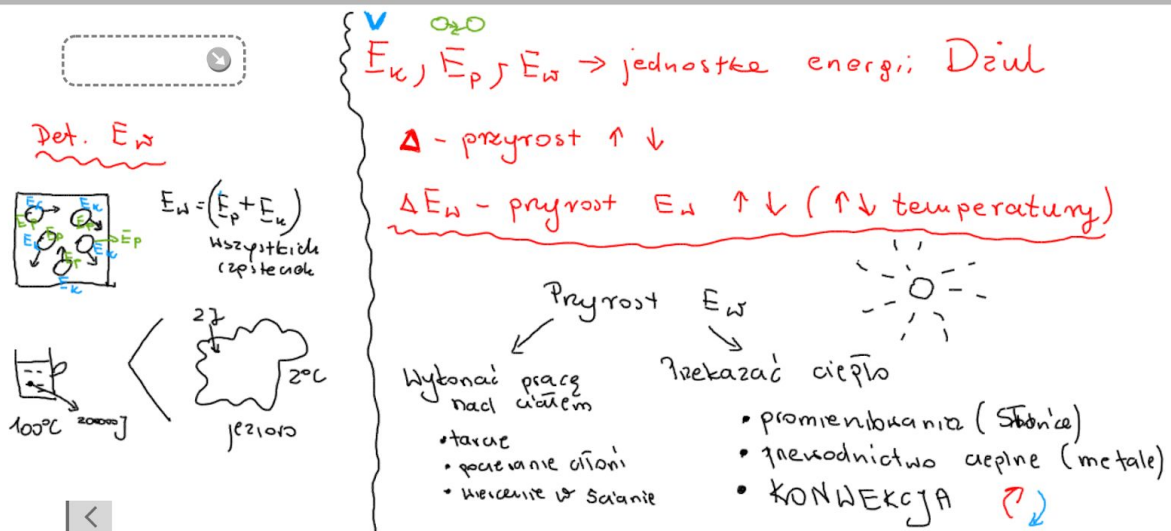 Def. Ew
Ek Ek
Ep Ep
Ek Ep Ek Ep
Ep
Ek
Ew = (Ep + Ek)
wszystkich
cząsteczek
2J
2°C
100°C 20000J
jezioro
V
Ek, Ep, Ew → jednostka energii Dżul
Δ - przyrost ↑ ↓
ΔEw - przyrost Ew ↑ ↓ (↑↓ temperatury)
Przyrost Ew
Wykonać pracę
nad ciałem
• tarcie
• pocieranie dłoni
• wiercenie w ścianie
Przekazać ciepło
• promieniowania (Słońce)
• przewodnictwo cieplne (metale)
• KONWEKCJA